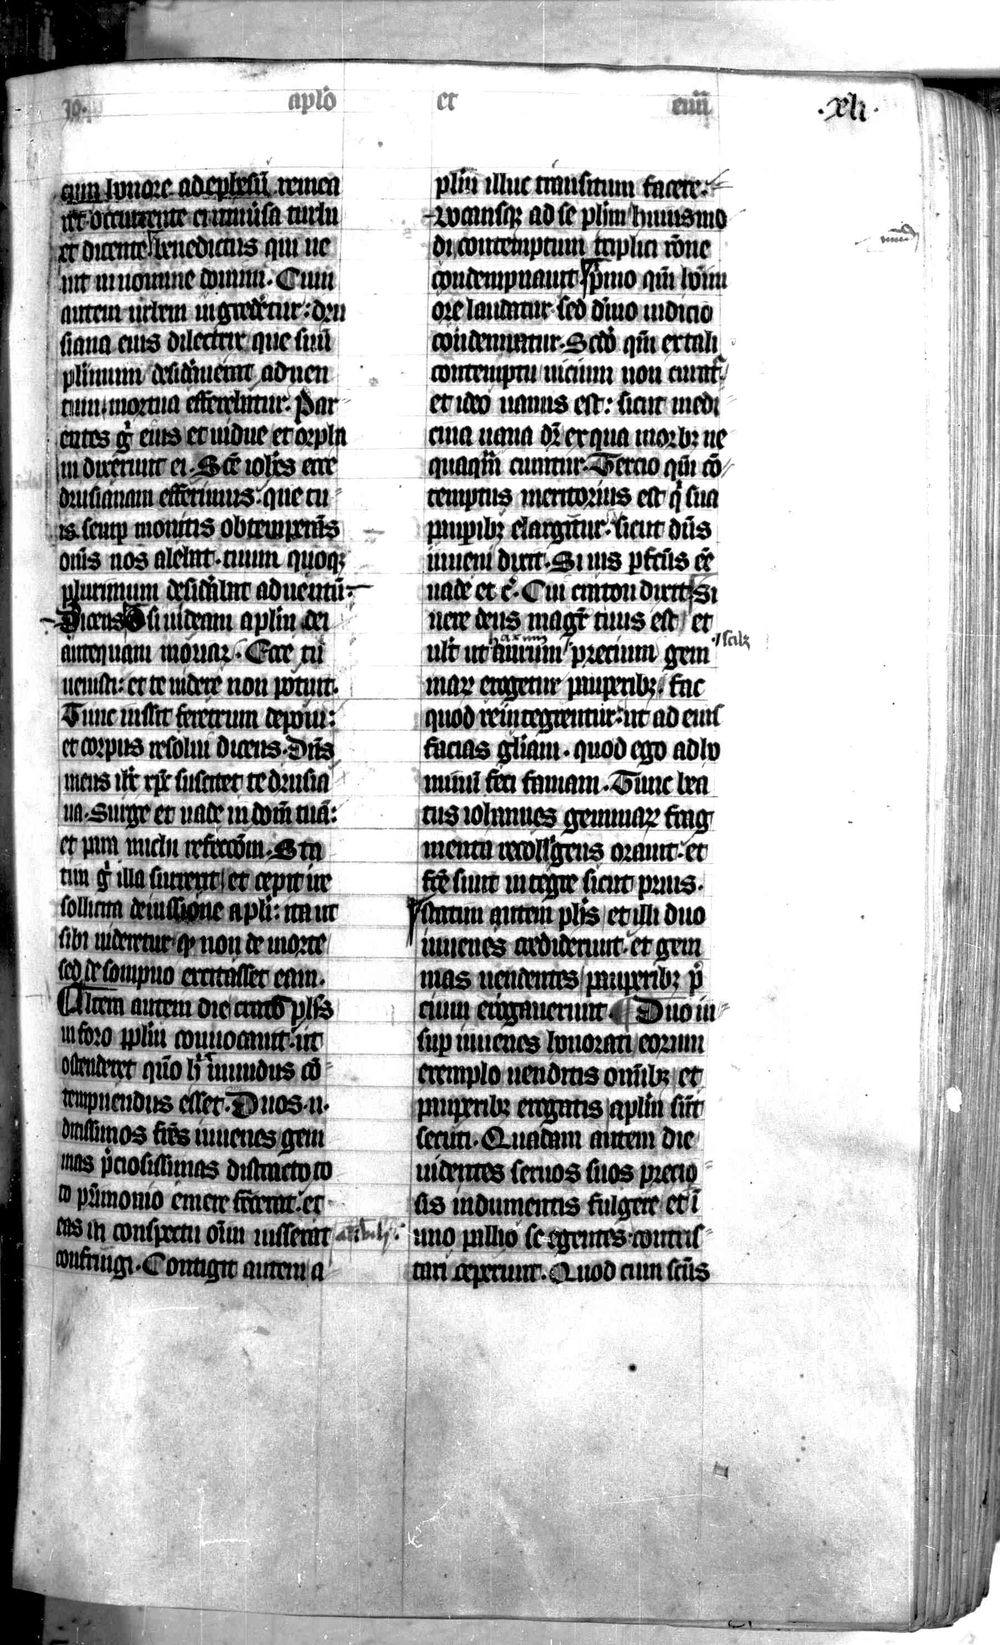 Jo. aplo et euan .xli.
cum honore ad ephesu remea
ret occurrente ei uniuersa turba
et dicente benedictus qui ue
nit in nomine domini. Cum
autem urbem ingrederetur: dru
siana eius dilectrix que suu
plurimum desiderauerat aduen
tum. mortua efferebatur. Par
entes g eius et uidue et orpha
ni dixerunt ei. Sce iohes ecce
drusianam efferimus: que tu
is semp monitis obtemperans
oms nos alebat. tuum quoqz
plurimum desiderabat aduentu:
Dicens O si uideam aplm dei
antequam moriar. Ecce tu
uenisti: et te uidere non potuit.
Tunc iussit feretrum deponi:
et corpus resolui dicens. Dns
meus ihc xpc suscitet te drusia
na. Surge et uade in dom tua:
et para michi refeccom. Sta
tim g illa surrexit et cepit ire
sollicita de iussione apli: ita ut
sibi uideretur qz non de morte
sed de sompno excitasset eam.
Altera autem die craton phs
in foro pplm conuocauit. ut
ostenderet quo hic mundus co
tempnendus esset. Duos .n.
ditissimos fres iuuenes gem
mas pciosissimas distracto to
to primonio emere fecerat. et
eas in conspectu oim iusserat
confringi. Contigit autem a
plm illuc transitum facere.
Uocansqz ad se phm huiusmo
di contemptum triplici rone
condempnauit. Primo qm homi
ore laudatur sed diuo iudicio
condempnatur. Scdo qm ex tali
contemptu uicium non curat
et ideo uanus est: sicut medi
cina uana dr ex qua morbz ne
quaqm curatur. Tercio qm co
temptus meritorius est q sua
pauperibz elargitur. sicut dns
iuueni dixit. Si uis pfcus ee
uade et c. Cui craton dixit Si
uere deus magr tuus est et
ult ut harum precium gem
marz erogetur pauperibz. fac
quod reintegrentur: ut ad eius
facias gliam. quod ego ad ho
minu feci famam. Tunc bea
tus iohannes gemmarz frag
menta recolligens orauit. et
fce sunt integre sicut prius.
Statim autem phs et illi duo
iuuenes crediderunt. et gem
mas uendentes pauperibz p
cium erogauerunt. Duo in
sup iuuenes honorati eorum
exemplo uenditis omibz et
pauperibz erogatis aplm sut
secuti. Quadam autem die
uidentes seruos suos precio
sis indumentis fulgere et i
uno pallio se egentes. contris
tari ceperunt. Quod cum scus